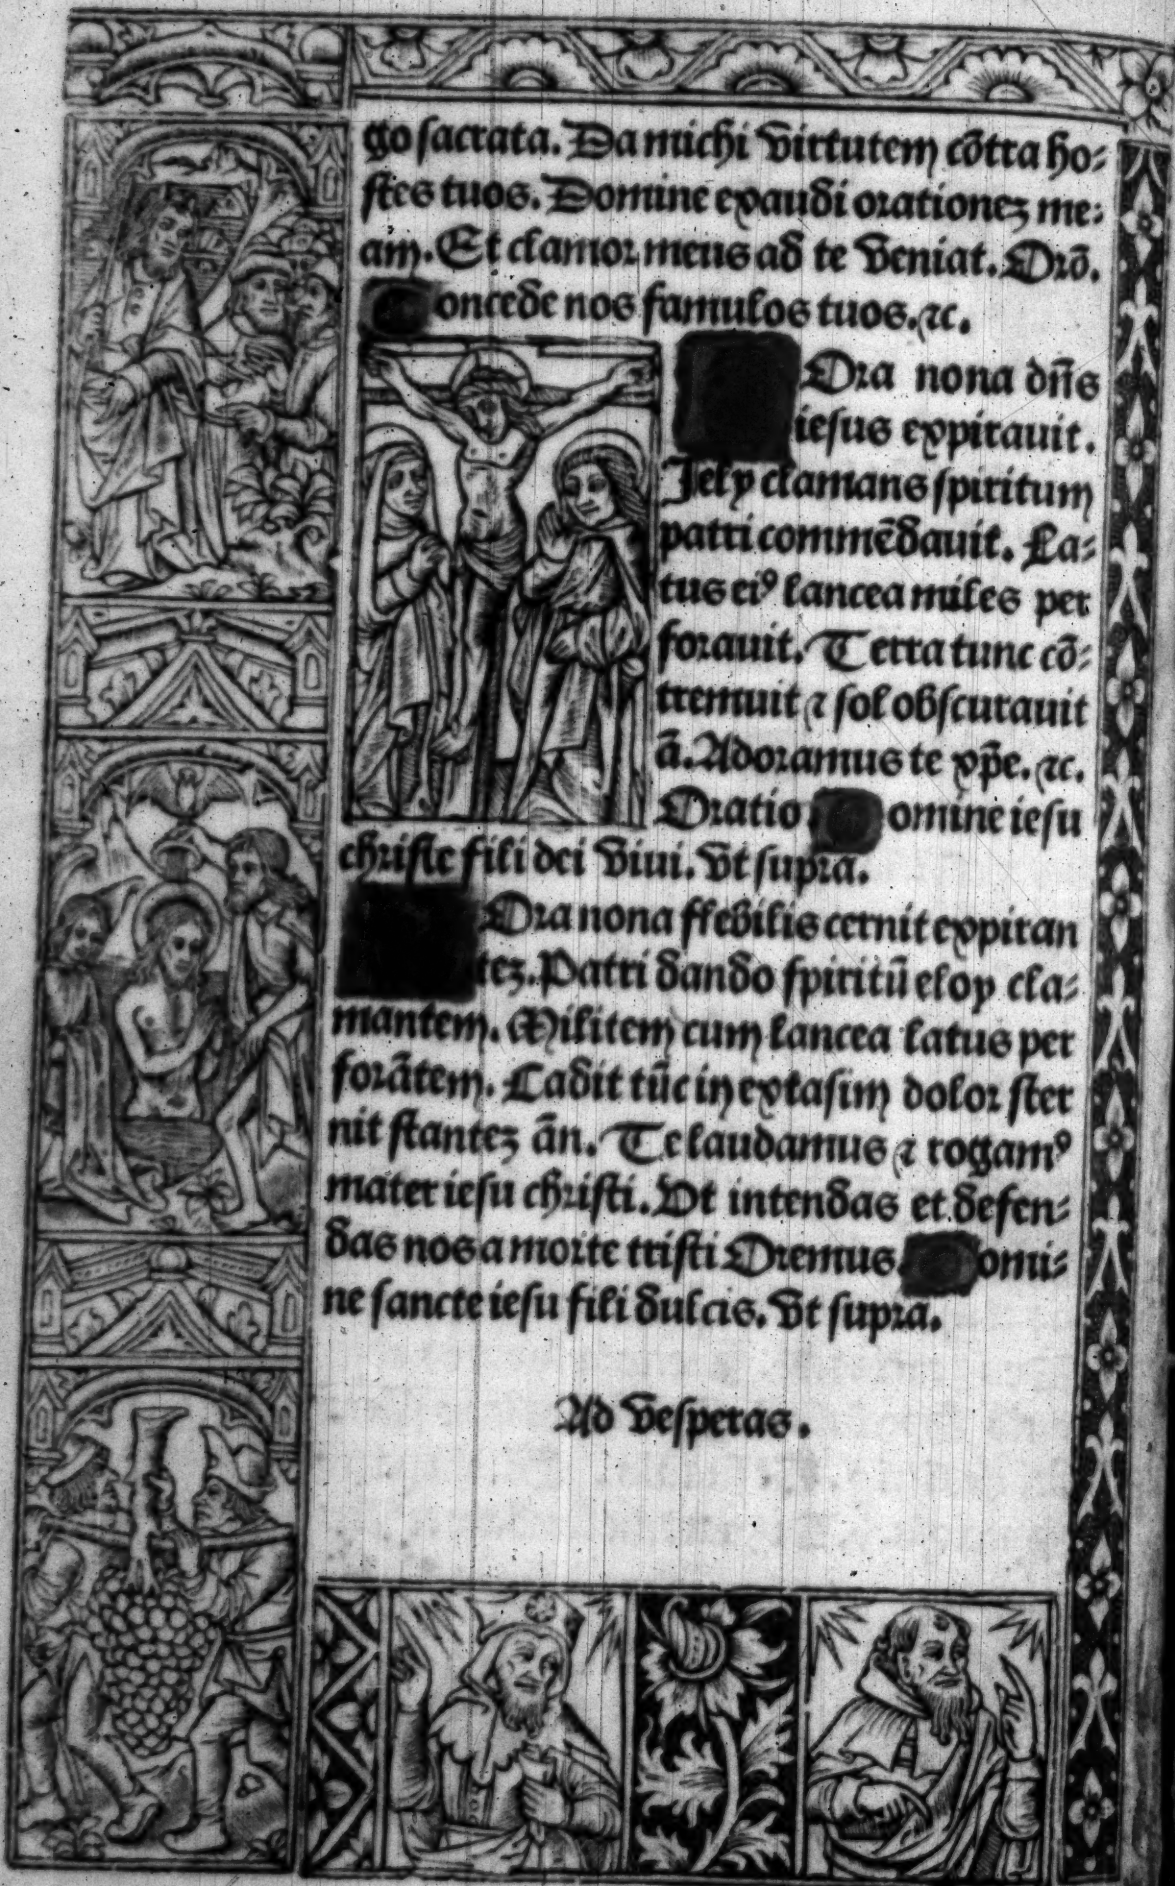 go sacrata. Da michi virtutem cōtra ho⸗
stes tuos. Domine exaudi orationeȝ me⸗
am. Et clamor meus ad te veniat. Orō.
oncede nos famulos tuos. ⁊c.
Ora nona dn̄s
iesus expirauit.
Jely clamans spiritum
patri commēdauit. La⸗
tus eiꝰ lancea miles per
forauit. Terra tunc cō⸗
tremuit ⁊ sol obscurauit
ā. Adoramus te xp̄e. ⁊c.
Oratio omine iesu
christe fili dei viui. vt supra.
Ora nona flebilis cernit expiran
teȝ. Patri dando spiritū eloy cla⸗
mantem. Militem cum lancea latus per
forātem. Cadit tūc in extasim dolor ster
nit stanteȝ ān. Te laudamus ⁊ rogamꝰ
mater iesu christi. Vt intendas et defen⸗
das nos a morte tristi Oremus. omi⸗
ne sancte iesu fili dulcis. vt supra.
Ad vesperas.